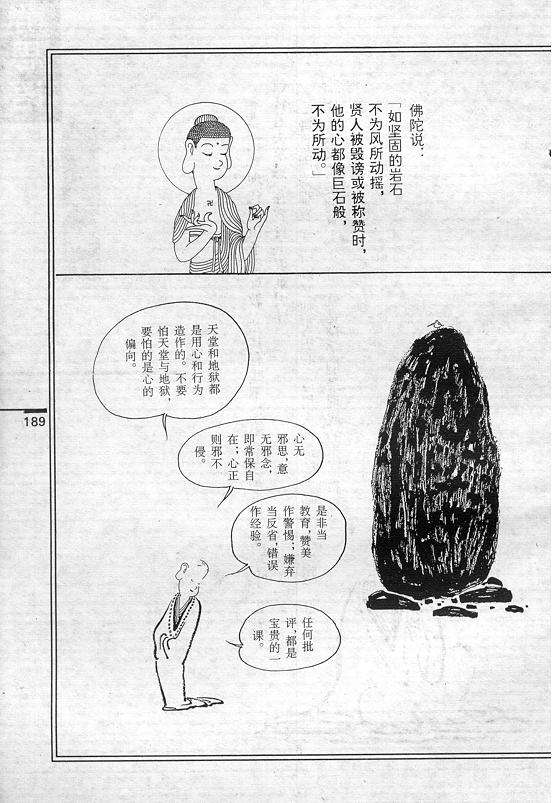 佛陀说：
「如坚固的岩石
不为风所动摇，
贤人被毁谤或被称赞时，
他的心都像巨石般，
不为所动。」
卍
天堂和地狱都
是用心和行为
造作的。不要
怕天堂与地狱，
要怕的是心的
偏向。
心无
邪思，意
无邪念，
即常保自
在；心正
则邪不
侵。
是非当
教育，赞美
作警惕；嫌弃
当反省，错误
作经验。
任何批
评，都是
宝贵的一
课。
189